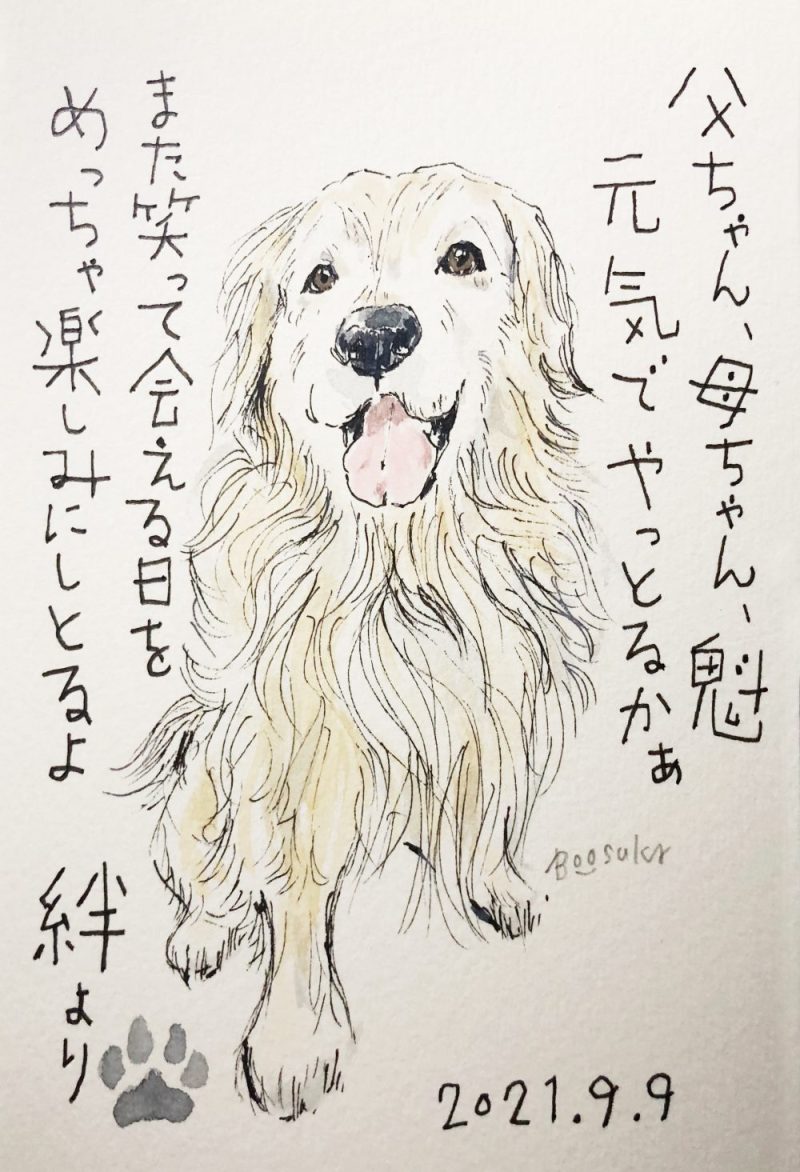 父ちゃん、母ちゃん、魁
元気でやっとるかぁ
また笑って会える日を
めっちゃ楽しみにしとるよ
絆より
Boosuke
2021.9.9